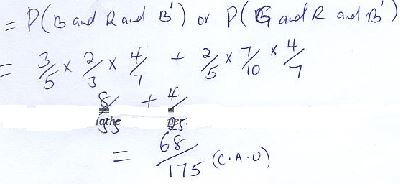 = P(B and R and B') or P(G and R and B')
= 3/5 × 2/3 × 4/7 + 2/5 × 7/10 × 4/7
8/35 + 4/25
= 68/175 (C.A.O)